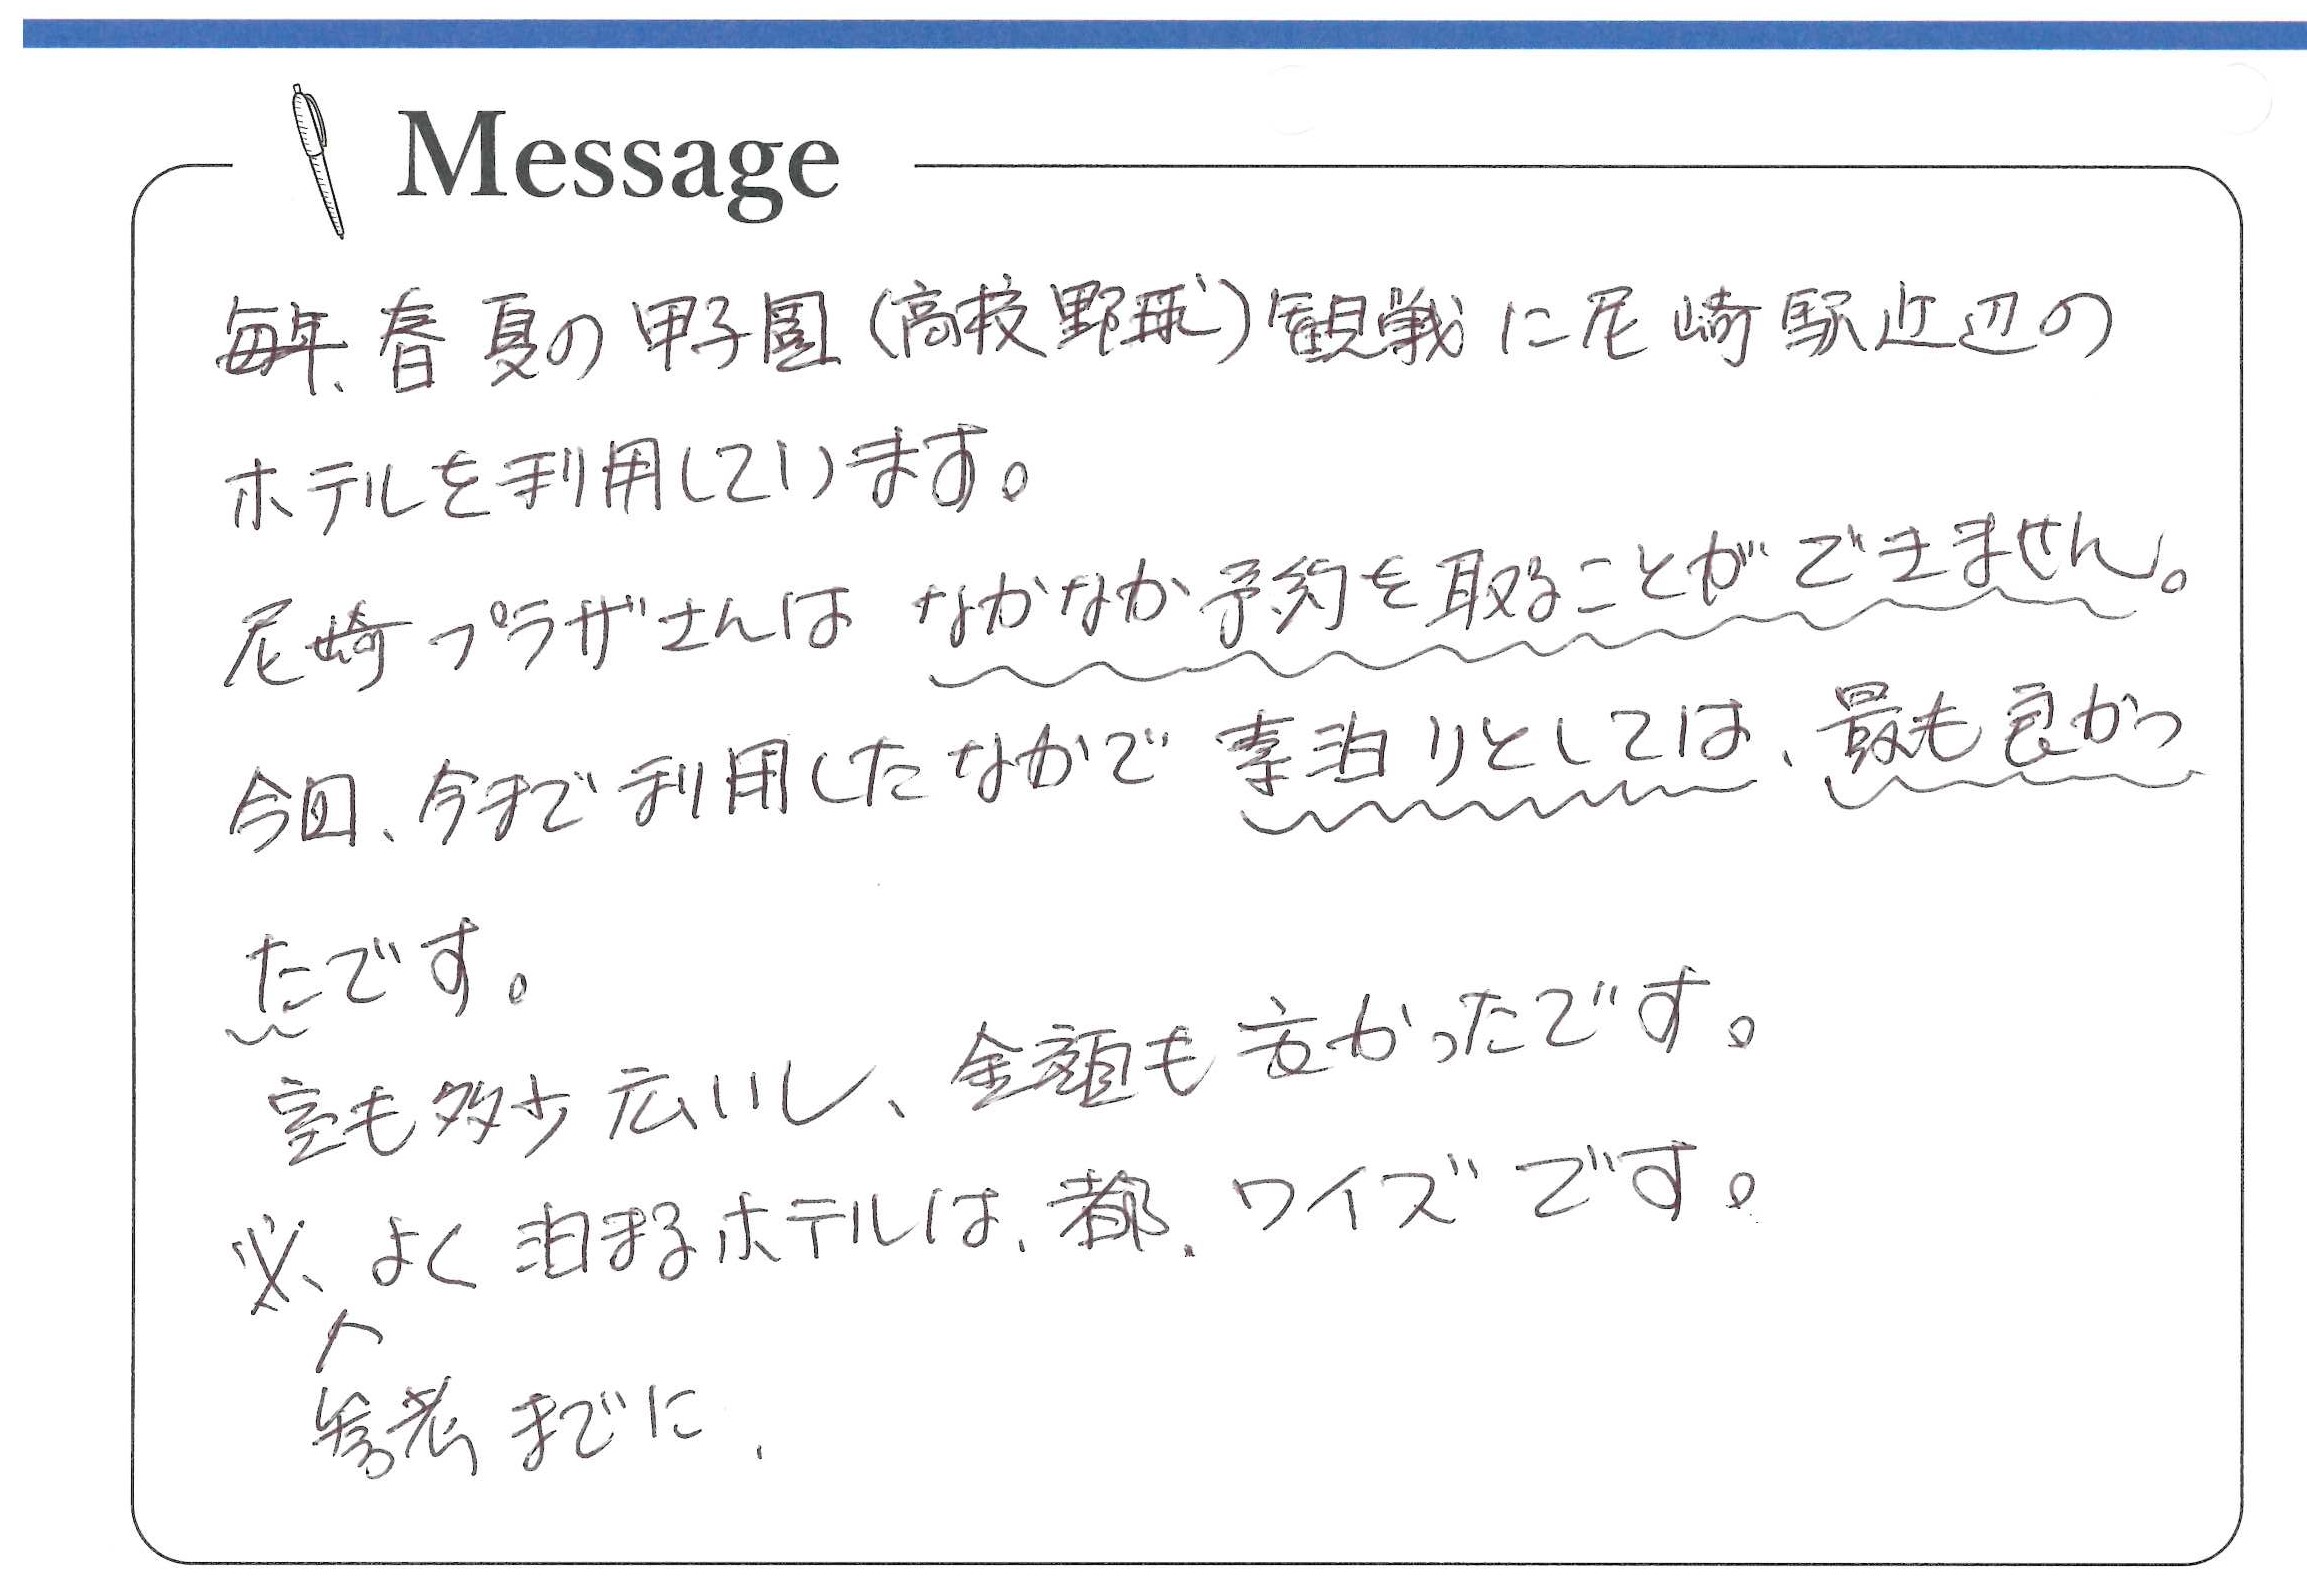 Message
毎年、春夏の甲子園(高校野球)観戦に尼崎駅近辺の
ホテルを利用しています。
尼崎プラザさんはなかなか予約を取ることができません。
今回、今まで利用したなかで素泊りとしては、最も良かっ
たです。
室も多少広いし、金額も安かったです。
※、よく泊まるホテルは、都、ワイズです。
参考までに、